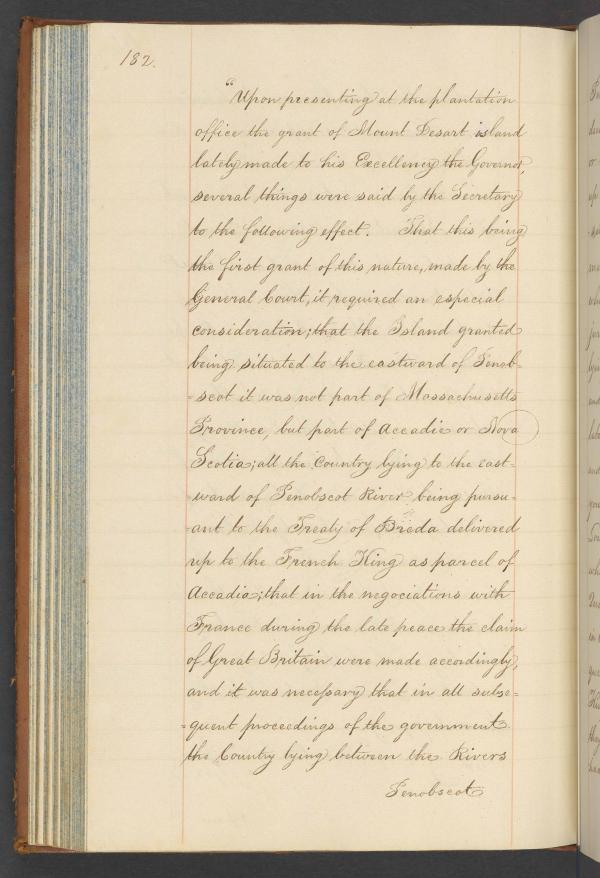 182.
"Upon presenting at the plantation
office the grant of Mount Desart island
lately made to his Excellency the Governor,
several things were said by the Secretary
to the following effect. That this being
the first grant of this nature, made by the
General Court, it required an especial
consideration; that the Island granted
being situated to the eastward of Penob-
-scot it was not part of Massachusetts
Province, but part of Accadie or Nova
Scotia; all the Country lying to the east-
ward of Penobscot River, being pursu-
-ant to the Treaty of Breda delivered
up to the French King as parcel of
Accadia; that in the negociations with
France during the late peace the claim
of Great Britain were made accordingly,
and it was necessary that in all subse-
-quent proceedings of the government
the Country lying between the Rivers
Penobscot